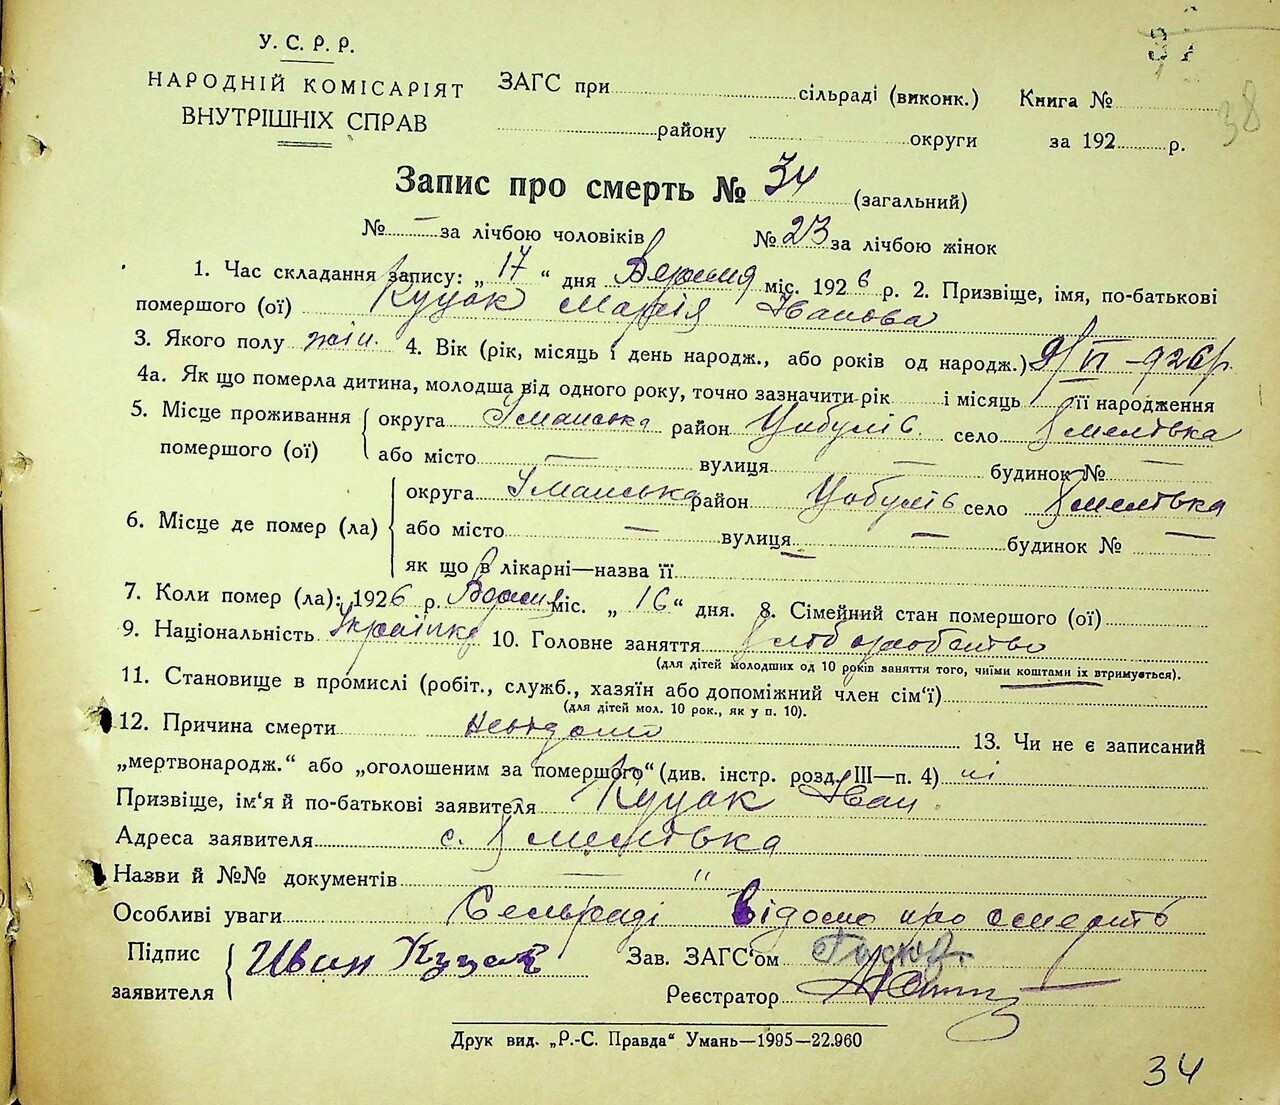 У. С. Р. Р.
НАРОДНІЙ КОМІСАРІЯТ
ВНУТРІШНІХ СПРАВ
ЗАГС при сільраді (виконк.) Книга №
району округи за 192 р.
38
Запис про смерть № 34 (загальний)
№ – за лічбою чоловіків № 23 за лічбою жінок
1. Час складання запису: „ 17 “ дня Вересня міс. 1926 р. 2. Призвіще, імя, по-батькові
помершого (ої) Куцак Марія Іванова
3. Якого полу жін. 4. Вік (рік, місяць і день народж., або років од народж.) 9/VI –926р.
4а. Як що померла дитина, молодша від одного року, точно зазначити рік і місяць її народження
5. Місце проживання помершого (ої) округа Уманська район Цибулів село
або місто — вулиця — будинок № —
6. Місце де помер (ла) округа Уманська район Цибулів село
або місто — вулиця — будинок № —
як що в лікарні—назва її
7. Коли помер (ла): 1926 р. Вересня міс. „ 16 “ дня. 8. Сімейний стан помершого (ої)
9. Національність Українка 10. Головне заняття хлоборобство
(для дітей молодших од 10 років заняття того, чиїми коштами їх втримується).
11. Становище в промислі (робіт., служб., хазяїн або допоміжний член сім'ї) —
(для дітей мол. 10 рок., як у п. 10).
12. Причина смерти невідома 13. Чи не є записаний
„мертвонародж.“ або „оголошеним за помершого“ (див. інстр. розд. III—п. 4) ні
Призвіще, ім'я й по-батькові заявителя Куцак Іван
Адреса заявителя с.
Назви й №№ документів — "
Особливі уваги Сельраді відомо про смерть
Підпис заявителя Иван Куцак Зав. ЗАГС'ом
Реєстратор
Друк вид. „Р.-С. Правда“ Умань—1995—22.960
34